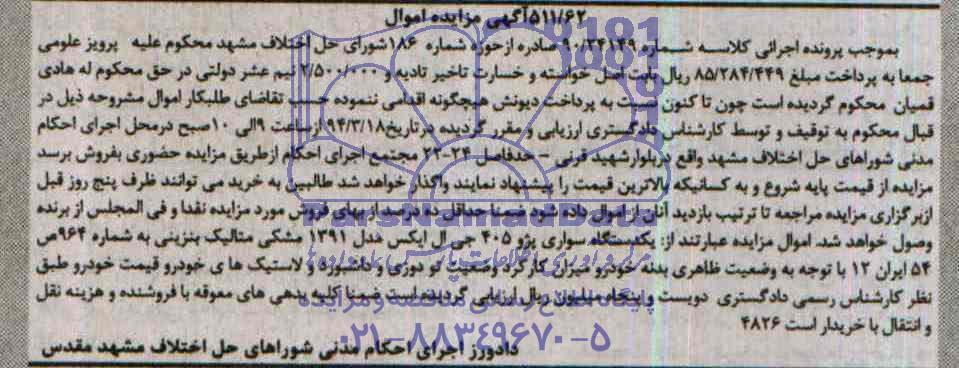 ۵۱۱/۶۲آگهی مزایده اموال
بموجب پرونده اجرائی کلاسه شماره ۹۰/۳۴۱۴۹ صادره ازحوزه شماره ۱۸۶شورای حل اختلاف مشهد محکوم علیه پرویز علومی
جمعا به پرداخت مبلغ ۸۵/۲۸۴/۴۴۹ ریال بابت اصل خواسته و خسارت تاخیر تادیه و ۲/۵۰۰/۰۰۰ نیم عشر دولتی در حق محکوم له هادی
قمیان محکوم گردیده است چون تا کنون نسبت به پرداخت دیونش هیچگونه اقدامی ننموده حسب تقاضای طلبکار اموال مشروحه ذیل در
قبال محکوم به توقیف و توسط کارشناس دادگستری ارزیابی و مقرر گردیده درتاریخ۹۴/۳/۱۸ ازساعت ۹الی ۱۰صبح درمحل اجرای احکام
مدنی شوراهای حل اختلاف مشهد واقع دربلوارشهید قرنی - حدفاصل ۲۴-۲۲ مجتمع اجرای احکام ازطریق مزایده حضوری بفروش برسد
مزایده از قیمت پایه شروع و به کسانیکه بالاترین قیمت را پیشنهاد نمایند واگذار خواهد شد طالبین به خرید می توانند ظرف پنج روز قبل
ازبرگزاری مزایده مراجعه تا ترتیب بازدید آنان از اموال داده شود ضمنا حداقل ده درصد از بهای فروش مورد مزایده نقدا و فی المجلس از برنده
وصول خواهد شد. اموال مزایده عبارتند از: یکدستگاه سواری پژو ۴۰۵ جی ال ایکس مدل ۱۳۹۱ مشکی متالیک بنزینی به شماره ۹۶۴ص
۵۴ ایران ۱۲ با توجه به وضعیت ظاهری بدنه خودرو میزان کارکرد وضعیت تو دوزی و داشبورد و لاستیک ها ی خودرو قیمت خودرو طبق
نظر کارشناس رسمی دادگستری دویست و پنجاه میلیون ریال ارزیابی گردیده است ضمنا کلیه بدهی های معوقه با فروشنده و هزینه نقل
و انتقال با خریدار است ۴۸۲۶
۰۲۱-۸۸۳۴۹۶۷۰-۵
دادورز اجرای احکام مدنی شوراهای حل اختلاف مشهد مقدس